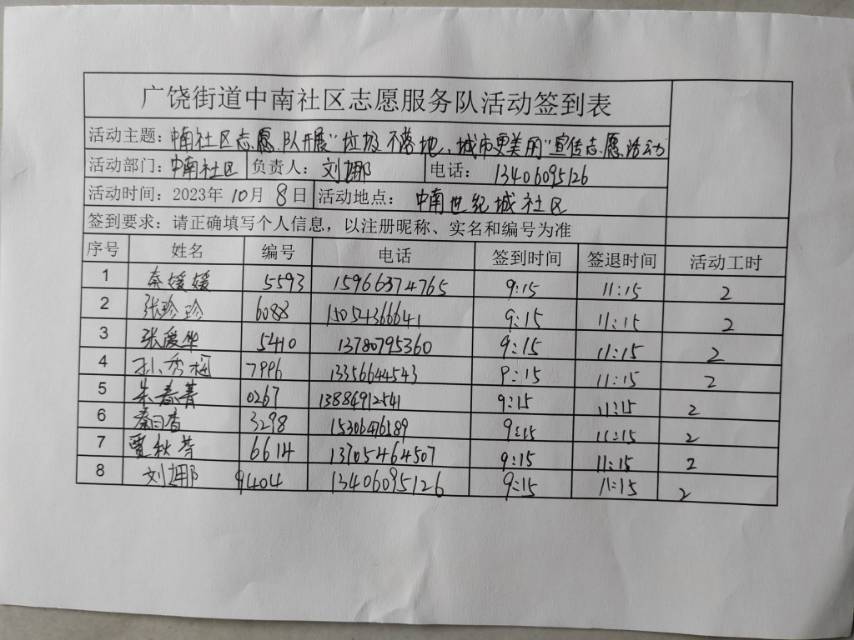 广饶街道中南社区志愿服务队活动签到表
活动主题：中南社区志愿队开展"垃圾不落地，城市更美丽"宣传志愿活动
活动部门：中南社区 负责人：刘娜 电话：13406095126
活动时间：2023年10月8日 活动地点：中南世纪城社区
签到要求：请正确填写个人信息，以注册昵称、实名和编号为准
序号 姓名 编号 电话 签到时间 签退时间 活动工时
1 秦媛媛 5593 15966374765 9:15 11:15 2
2 张珍珍 6088 15054366641 9:15 11:15 2
3 张爱华 5410 13780795360 9:15 11:15 2
4 孙秀梅 7996 13356644543 9:15 11:15 2
5 朱春菁 0267 13884912541 9:15 11:15 2
6 秦日香 3298 15306476589 9:15 11:15 2
7 贾秋芳 6614 13705464507 9:15 11:15 2
8 刘娜 9404 13406095126 9:15 11:15 2